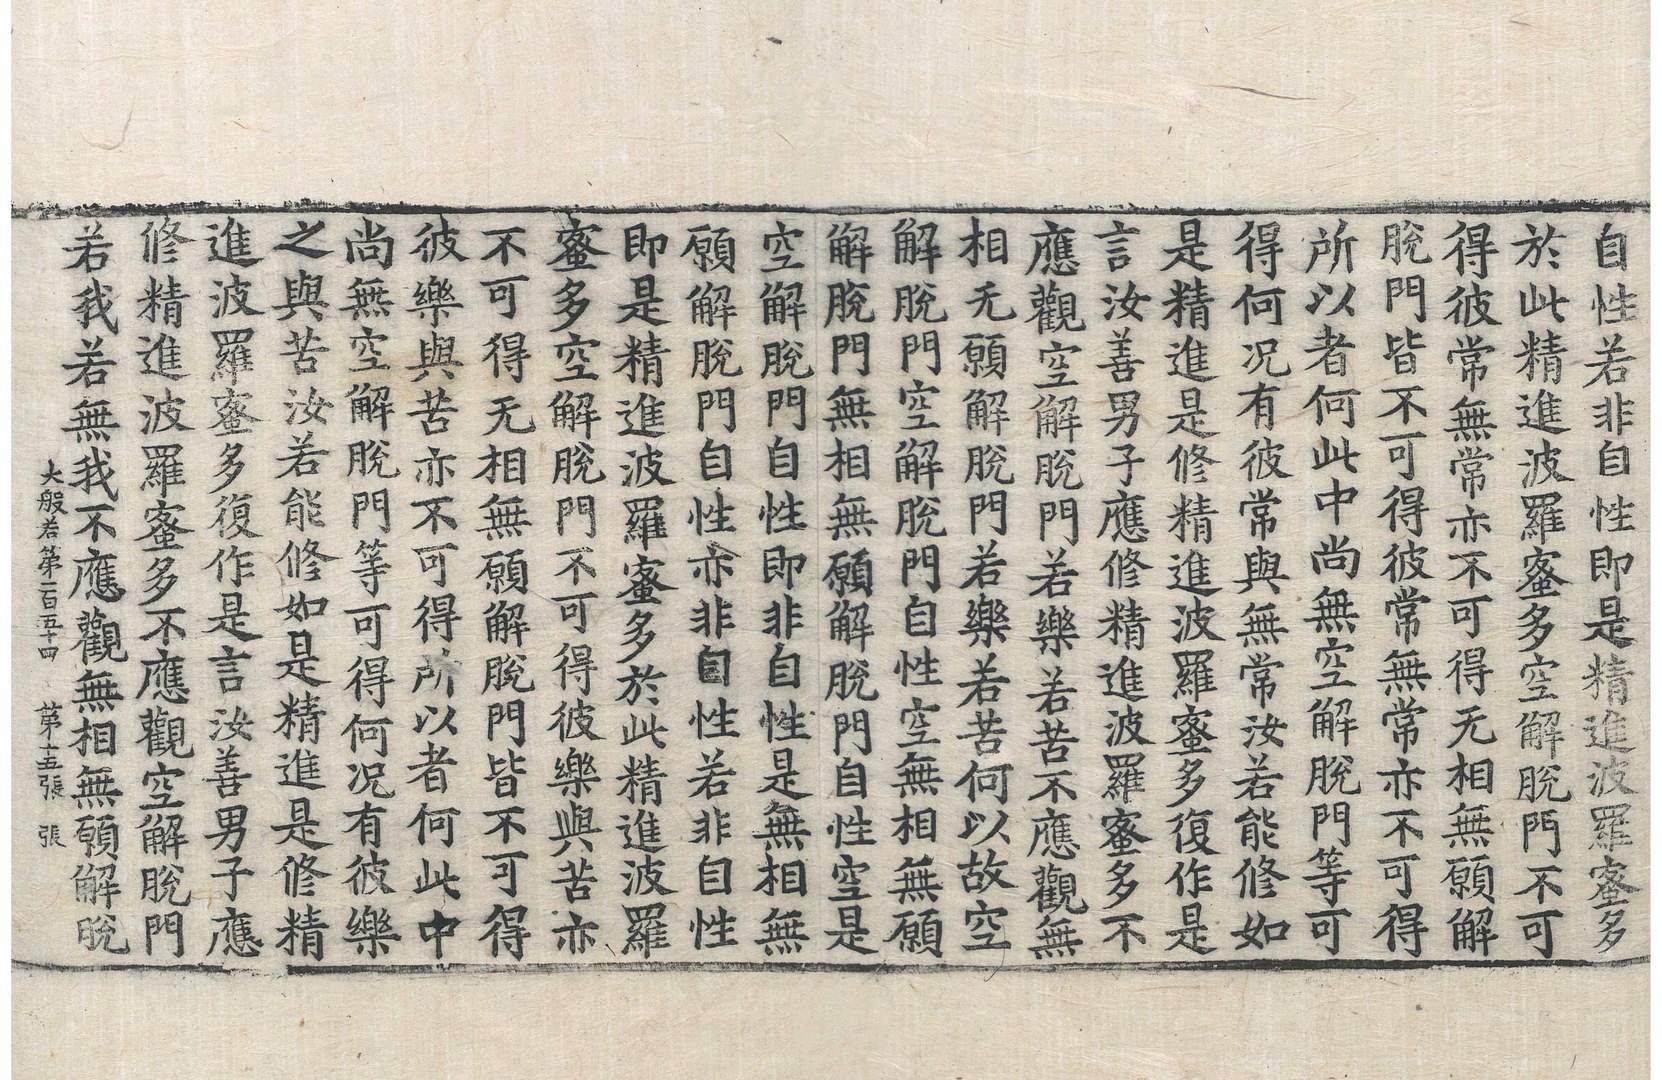 自性若非自性即是精進波羅蜜多
於此精進波羅蜜多空解脫門不可
得彼常無常亦不可得无相無願解
脫門皆不可得彼常無常亦不可得
所以者何此中尚無空解脫門等可
得何況有彼常與無常汝若能修如
是精進是修精進波羅蜜多復作是
言汝善男子應修精進波羅蜜多不
應觀空解脫門若樂若苦不應觀無
相无願解脫門若樂若苦何以故空
解脫門空解脫門自性空無相無願
解脫門無相無願解脫門自性空是
空解脫門自性即非自性是無相無
願解脫門自性亦非自性若非自性
即是精進波羅蜜多於此精進波羅
蜜多空解脫門不可得彼樂與苦亦
不可得无相無願解脫門皆不可得
彼樂與苦亦不可得所以者何此中
尚無空解脫門等可得何況有彼樂
之與苦汝若能修如是精進是修精
進波羅蜜多復作是言汝善男子應
修精進波羅蜜多不應觀空解脫門
若我若無我不應觀無相無願解脫
大般若第一百五十四 第十五張 張